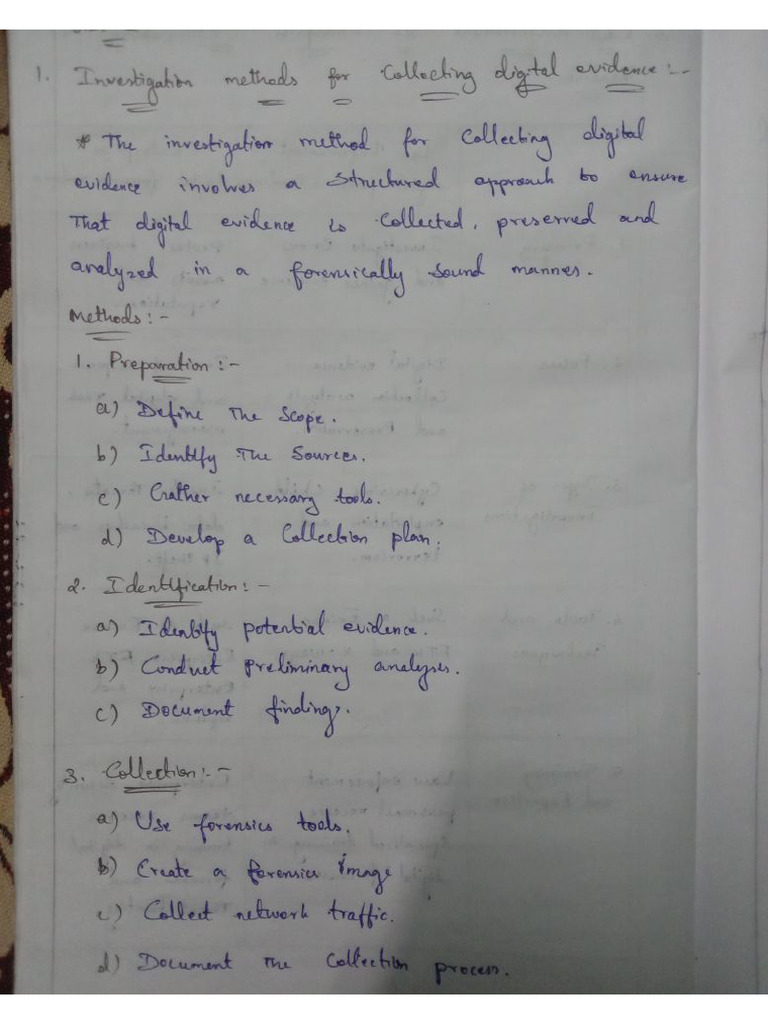 1. Investigation methods for Collecting digital evidence :-
* The investigation method for Collecting digital
evidence involves a structured approach to ensure
That digital evidence is Collected, preserved and
analyzed in a forensically sound manner.
Methods :-
1. Preparation :-
a) Define The Scope.
b) Identify The Sources.
c) Gather necessary tools.
d) Develop a Collection plan.
2. Identification :-
a) Identify potential evidence.
b) Conduct preliminary analyses.
c) Document findings.
3. Collection :-
a) Use forensics tools.
b) Create a forensics image
c) Collect network traffic.
d) Document The Collection process.